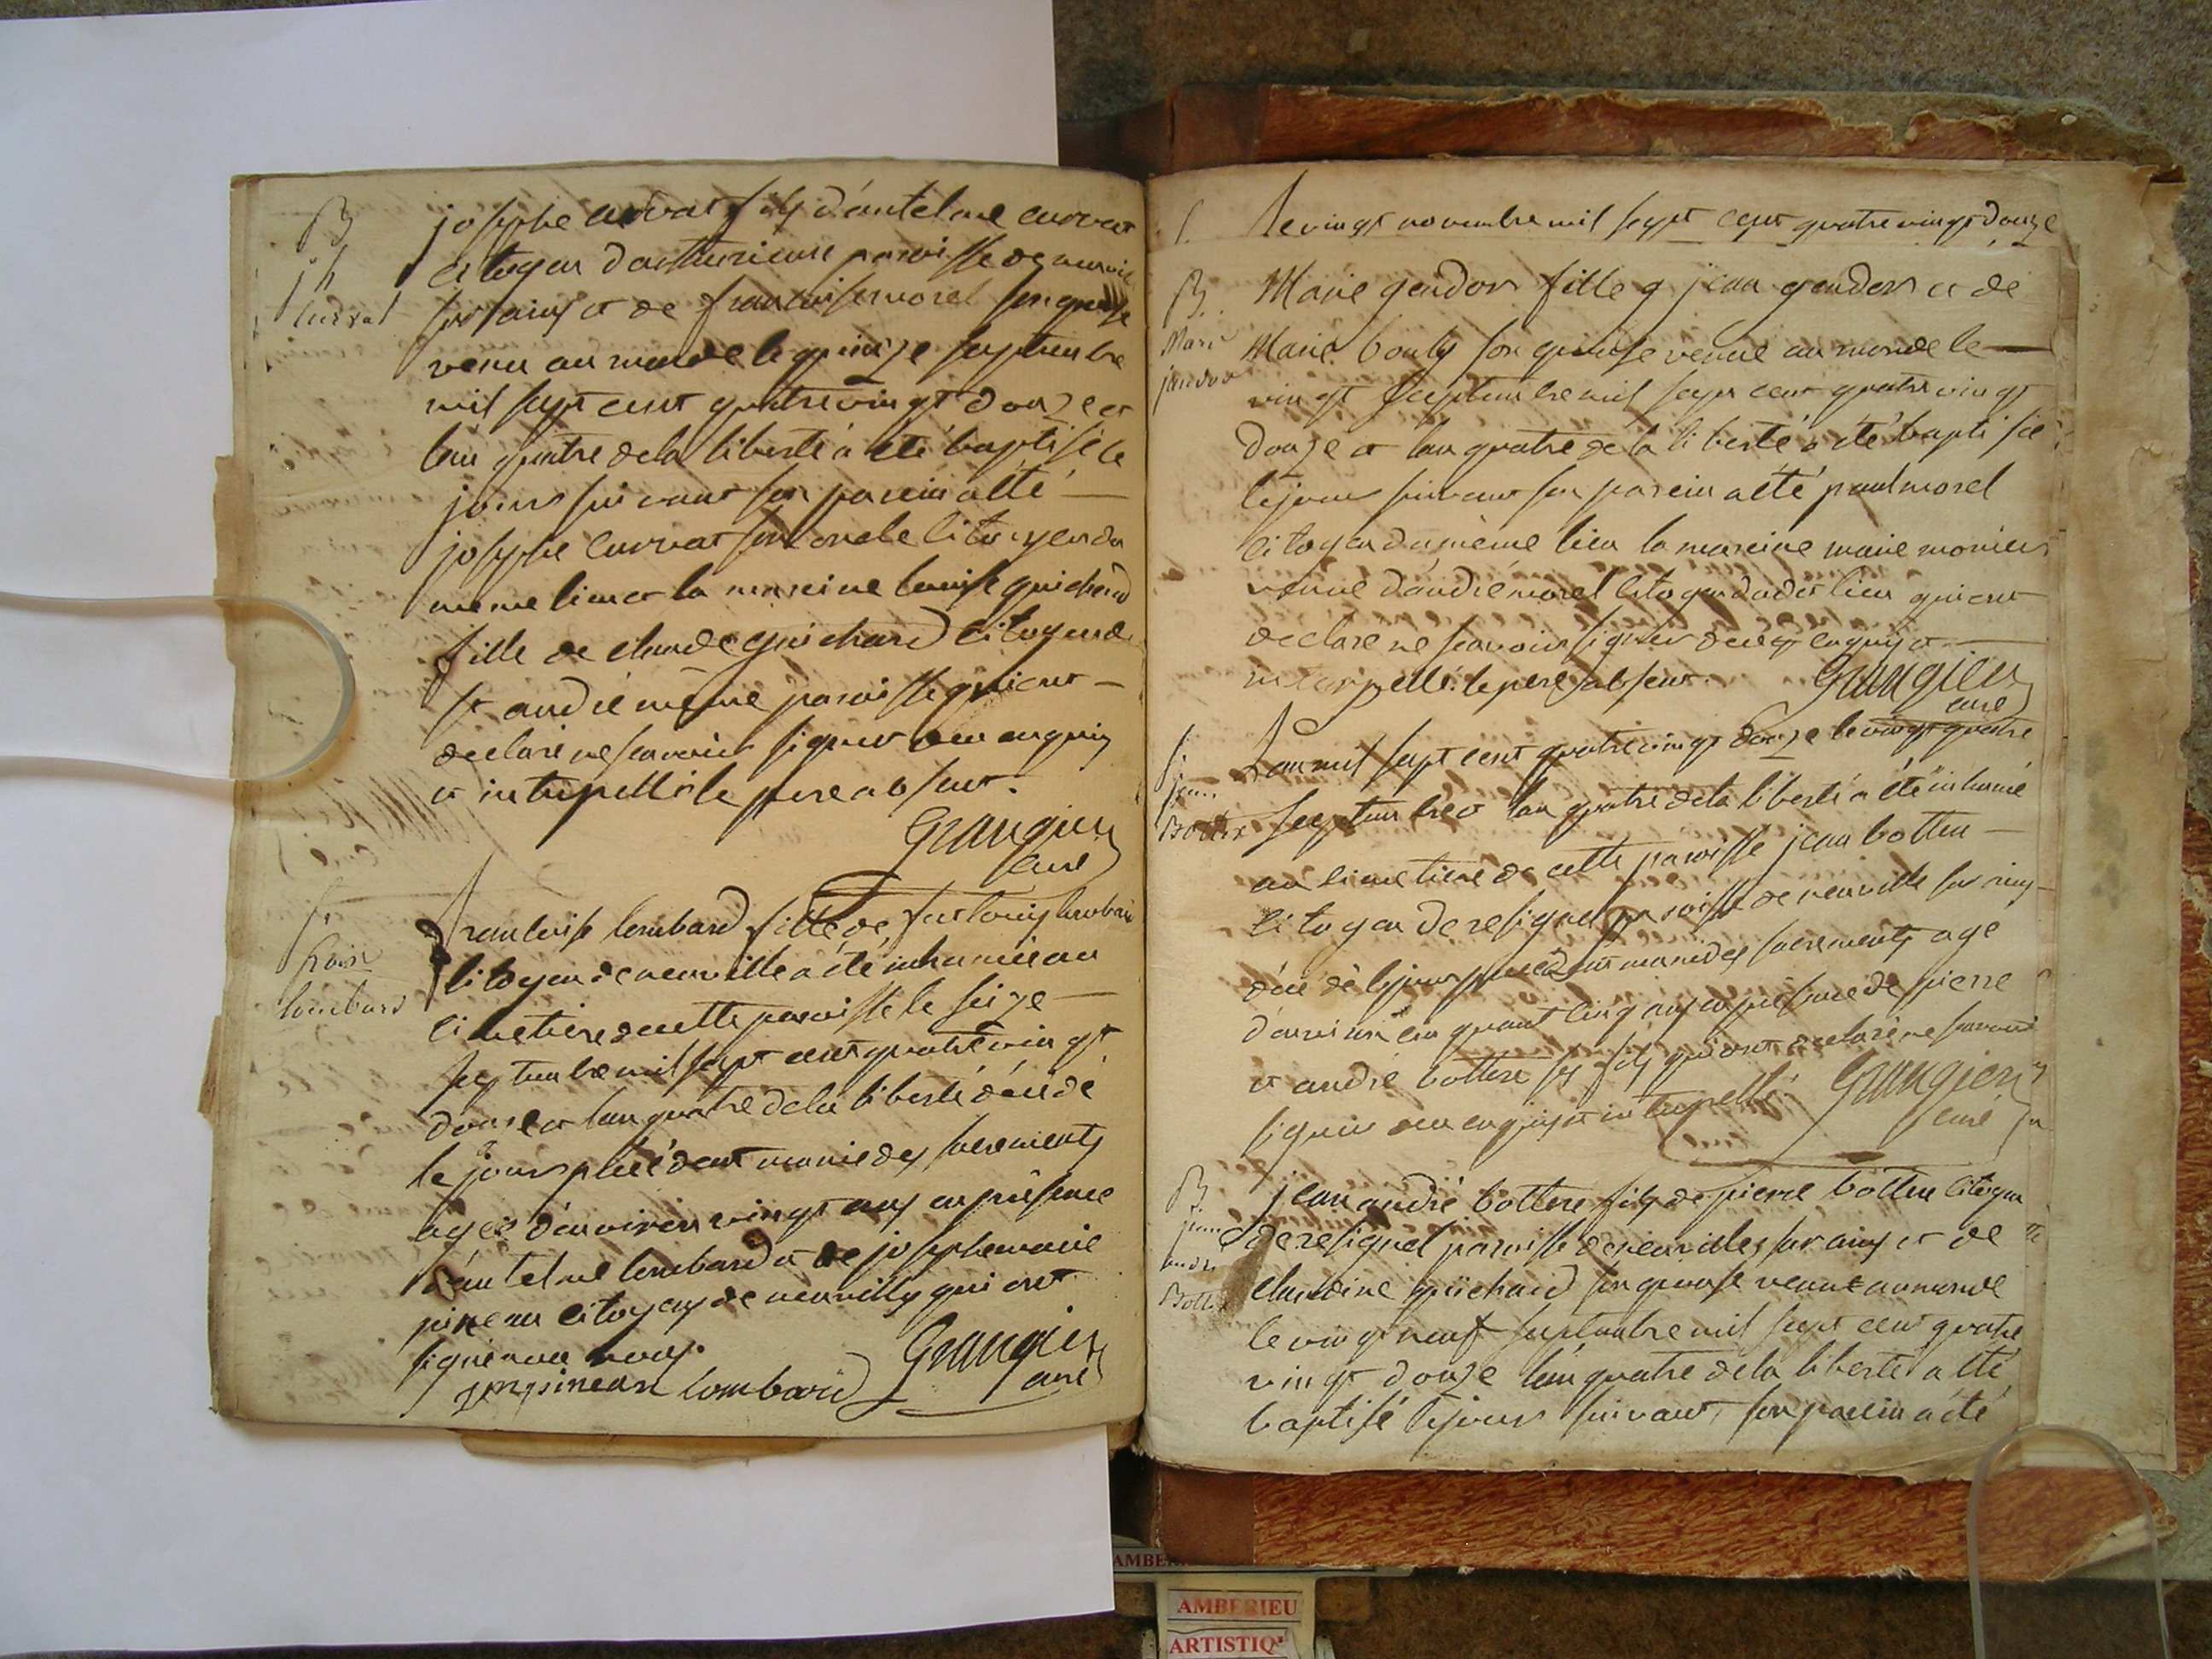 B
jh
Curvat
josephe curvat fils d'antelme curvat
citoyen dauthurieure paroisse de neuville
sur ains et de francoise morel son epouse
venu au monde le quinze septembre
mil sept cent quatre vingt douze et
l'an quatre de la liberté a eté baptisé le
jours suivant son parein a été
josephe Curvat son oncle citoyen du
meme lieu et la mareine louise guichard
fille de claude guichard citoyen de
st andré même paroisse qui ont
declaré ne scavoir signer de ce enquis
et interpellé le pere absent.
Grangier
curé
s
fraise
lombard
francoise lombard fille de louis lombard
citoyen de neuville a été inhumée au
cimetiere de cette paroisse le seize
septembre mil sept cent quatre vingt
douze et l'an quatre de la liberté décédé
le jours précédent munie des sacrements
agée d'environ vingt ans en présence
d'antelme lombard et de josephe marie
pineau citoyens de neuville qui ont
signé avec nous.
pineau lombard
Grangier
curé
le vingt novembre mil sept cent quatre vingt douze
B
Marie
jandon
Marie gendon fille de jean gendon et de
Marie bouly son epouse venue au monde le
vingt septembre mil sept cent quatre vingt
douze et l'an quatre de la liberté a été baptisée
le jours suivant son parein a été paul morel
citoyen du même lieu la mareine marie monier
d'andré morel citoyen dudit lieu qui ont
declaré ne scavoir signer de ce enquis et
interpellé. le pere absent.
Grangier
curé
s
jean
Bottex
L'an mil sept cent quatre vingt douze le vingt quatre
septembre et l'an quatre de la liberté a été inhumé
au cimetiere de cette paroisse jean bottex
citoyen de resignel paroisse de neuville sur ains
décédé le jours précédent muni des sacrements agé
d'environ cinquante cinq ans en présence de pierre
et andré bottex ses fils qui ont declaré ne scavoir
signer de ce enquis et interpellé
Grangier
curé
B
jean
andré
Bottex
jean andré bottex fils de pierre bottex citoyen
de resignel paroisse de neuville sur ains et de
claudine guichard son epouse venu au monde
le vingt neuf septembre mil sept cent quatre
vingt douze l'an quatre de la liberté a été
baptisé le jours suivant, son parein a été
AMBERIEU
ARTISTIQ